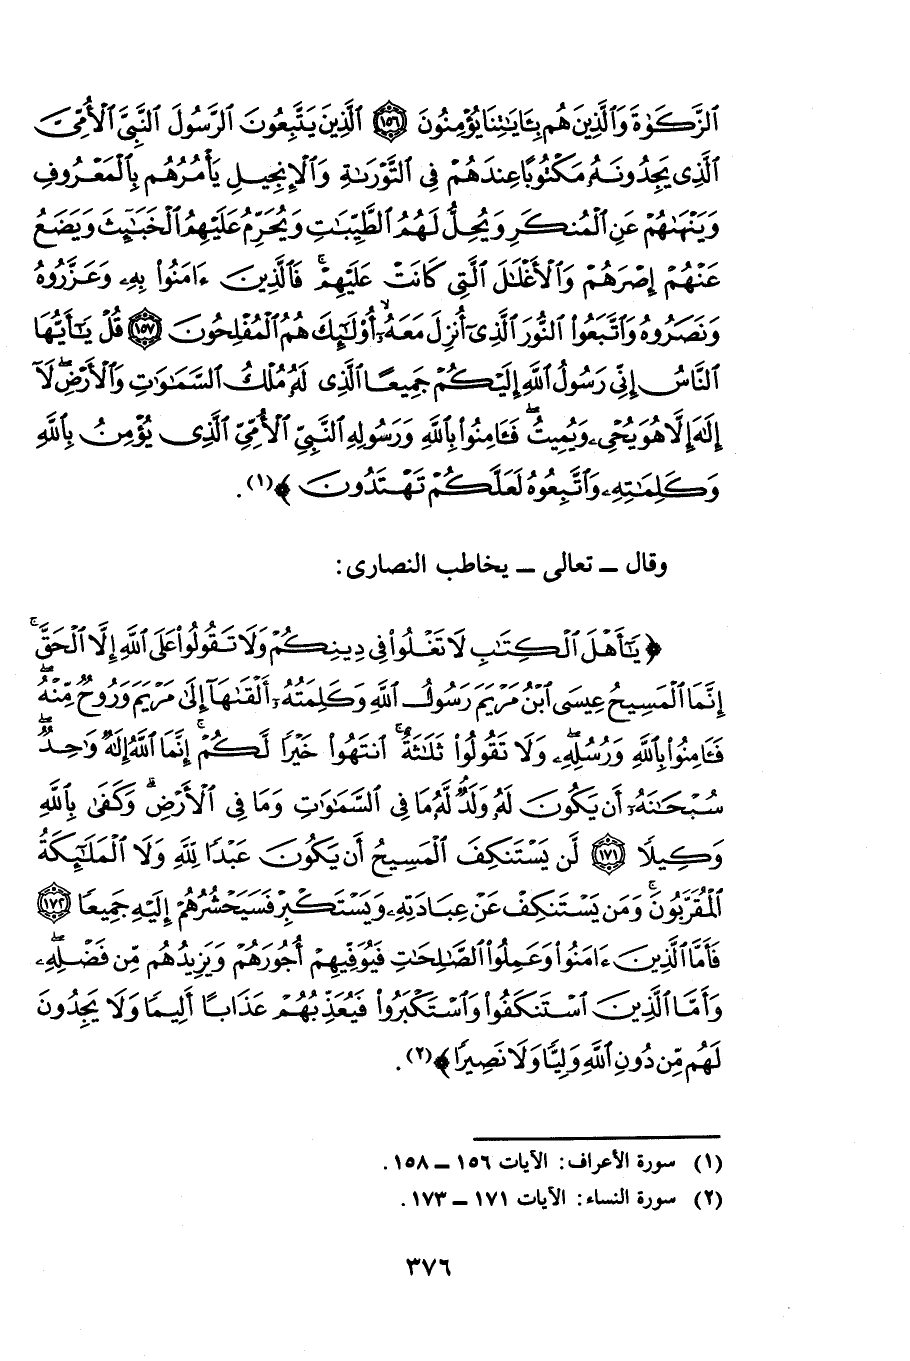 ٱلزَّكَوٰةَ وَٱلَّذِينَ هُم بِـَٔايَٰتِنَا يُؤْمِنُونَ ۝١٥٦ ٱلَّذِينَ يَتَّبِعُونَ ٱلرَّسُولَ ٱلنَّبِيَّ ٱلْأُمِّيَّ
ٱلَّذِى يَجِدُونَهُۥ مَكْتُوبًا عِندَهُمْ فِى ٱلتَّوْرَىٰةِ وَٱلْإِنجِيلِ يَأْمُرُهُم بِٱلْمَعْرُوفِ
وَيَنْهَىٰهُمْ عَنِ ٱلْمُنكَرِ وَيُحِلُّ لَهُمُ ٱلطَّيِّبَٰتِ وَيُحَرِّمُ عَلَيْهِمُ ٱلْخَبَٰٓئِثَ وَيَضَعُ
عَنْهُمْ إِصْرَهُمْ وَٱلْأَغْلَٰلَ ٱلَّتِى كَانَتْ عَلَيْهِمْ ۚ فَٱلَّذِينَ ءَامَنُوا۟ بِهِۦ وَعَزَّرُوهُ
وَنَصَرُوهُ وَٱتَّبَعُوا۟ ٱلنُّورَ ٱلَّذِىٓ أُنزِلَ مَعَهُۥٓ ۙ أُو۟لَٰٓئِكَ هُمُ ٱلْمُفْلِحُونَ ۝١٥٧ قُلْ يَٰٓأَيُّهَا
ٱلنَّاسُ إِنِّى رَسُولُ ٱللَّهِ إِلَيْكُمْ جَمِيعًا ٱلَّذِى لَهُۥ مُلْكُ ٱلسَّمَٰوَٰتِ وَٱلْأَرْضِ ۖ لَآ
إِلَٰهَ إِلَّا هُوَ يُحْىِۦ وَيُمِيتُ ۖ فَـَٔامِنُوا۟ بِٱللَّهِ وَرَسُولِهِ ٱلنَّبِيِّ ٱلْأُمِّيِّ ٱلَّذِى يُؤْمِنُ بِٱللَّهِ
وَكَلِمَٰتِهِۦ وَٱتَّبِعُوهُ لَعَلَّكُمْ تَهْتَدُونَ ﴾(١).
وقال ــ تعالى ــ يخاطب النصارى:
﴿ يَٰٓأَهْلَ ٱلْكِتَٰبِ لَا تَغْلُوا۟ فِى دِينِكُمْ وَلَا تَقُولُوا۟ عَلَى ٱللَّهِ إِلَّا ٱلْحَقَّ ۚ
إِنَّمَا ٱلْمَسِيحُ عِيسَى ٱبْنُ مَرْيَمَ رَسُولُ ٱللَّهِ وَكَلِمَتُهُۥٓ أَلْقَىٰهَآ إِلَىٰ مَرْيَمَ وَرُوحٌ مِّنْهُ ۖ
فَـَٔامِنُوا۟ بِٱللَّهِ وَرُسُلِهِۦ ۖ وَلَا تَقُولُوا۟ ثَلَٰثَةٌ ۚ ٱنتَهُوا۟ خَيْرًا لَّكُمْ ۚ إِنَّمَا ٱللَّهُ إِلَٰهٌ وَٰحِدٌ ۖ
سُبْحَٰنَهُۥٓ أَن يَكُونَ لَهُۥ وَلَدٌ ۘ لَّهُۥ مَا فِى ٱلسَّمَٰوَٰتِ وَمَا فِى ٱلْأَرْضِ ۗ وَكَفَىٰ بِٱللَّهِ
وَكِيلًا ۝١٧١ لَّن يَسْتَنكِفَ ٱلْمَسِيحُ أَن يَكُونَ عَبْدًا لِّلَّهِ وَلَا ٱلْمَلَٰٓئِكَةُ
ٱلْمُقَرَّبُونَ ۚ وَمَن يَسْتَنكِفْ عَنْ عِبَادَتِهِۦ وَيَسْتَكْبِرْ فَسَيَحْشُرُهُمْ إِلَيْهِ جَمِيعًا ۝١٧٢
فَأَمَّا ٱلَّذِينَ ءَامَنُوا۟ وَعَمِلُوا۟ ٱلصَّٰلِحَٰتِ فَيُوَفِّيهِمْ أُجُورَهُمْ وَيَزِيدُهُم مِّن فَضْلِهِۦ ۖ
وَأَمَّا ٱلَّذِينَ ٱسْتَنكَفُوا۟ وَٱسْتَكْبَرُوا۟ فَيُعَذِّبُهُمْ عَذَابًا أَلِيمًا وَلَا يَجِدُونَ
لَهُم مِّن دُونِ ٱللَّهِ وَلِيًّا وَلَا نَصِيرًا ﴾(٢).
(١) سورة الأعراف: الآيات ١٥٦ ــ ١٥٨.
(٢) سورة النساء: الآيات ١٧١ ــ ١٧٣.
٣٧٦